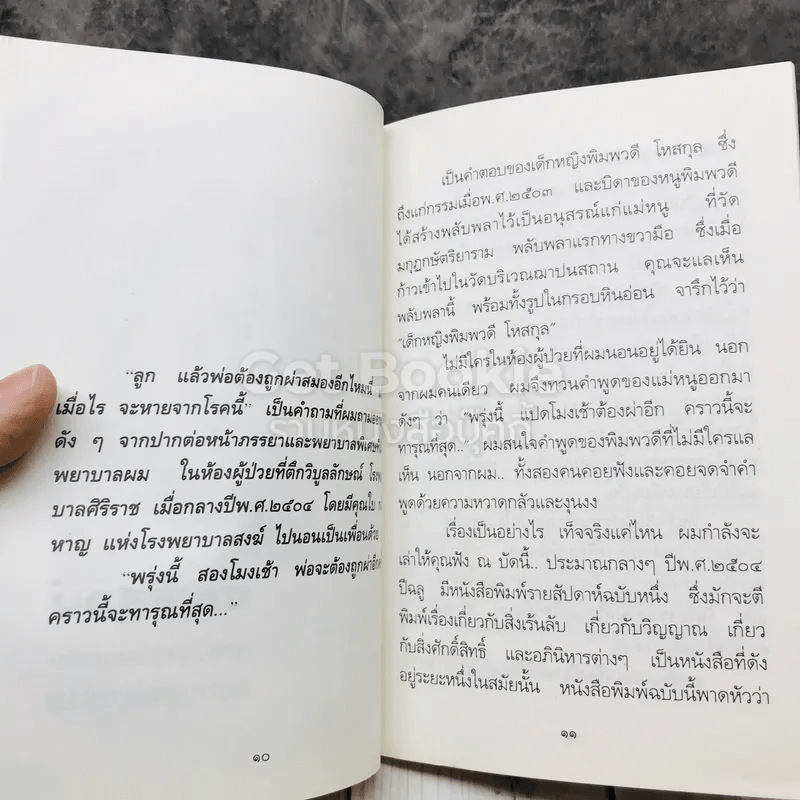 “ลูก แล้วพ่อต้องถูกผ่าสมองอีกไหมนี่
เมื่อไร จะหายจากโรคนี้” เป็นคำถามที่ผมถามออก
ดัง ๆ จากปากต่อหน้าภรรยาและพยาบาลพิเศษ
พยาบาลผม ในห้องผู้ป่วยที่ตึกวิบูลลักษณ์ โรงพ
บาลศิริราช เมื่อกลางปีพ.ศ.๒๕๐๔ โดยมีคุณใบ
หาญ แห่งโรงพยาบาลสงฆ์ ไปนอนเป็นเพื่อนด้วย
“พรุ่งนี้ สองโมงเช้า พ่อจะต้องถูกผ่าอีก
คราวนี้จะทารุณที่สุด...”
๑๐
เป็นคำตอบของเด็กหญิงพิมพวดี โหสกุล ซึ่ง
ถึงแก่กรรมเมื่อพ.ศ.๒๕๐๓ และบิดาของหนูพิมพวดี
ได้สร้างพลับพลาไว้เป็นอนุสรณ์แก่แม่หนู ที่วัด
มกุฏกษัตริยาราม พลับพลาแรกทางขวามือ ซึ่งเมื่อ
ก้าวเข้าไปในวัดบริเวณฌาปนสถาน คุณจะแลเห็น
พลับพลานี้ พร้อมทั้งรูปในกรอบหินอ่อน จารึกไว้ว่า
“เด็กหญิงพิมพวดี โหสกุล”
ไม่มีใครในห้องผู้ป่วยที่ผมนอนอยู่ได้ยิน นอก
จากผมคนเดียว ผมจึงทวนคำพูดของแม่หนูออกมา
ดังๆ ว่า “พรุ่งนี้ แปดโมงเช้าต้องผ่าอีก คราวนี้จะ
ทารุณที่สุด..” ผมสนใจคำพูดของพิมพวดีที่ไม่มีใครแล
เห็น นอกจากผม.. ทั้งสองคนคอยฟังและคอยจดจำคำ
พูดด้วยความหวาดกลัวและงุนงง
เรื่องเป็นอย่างไร เท็จจริงแค่ไหน ผมกำลังจะ
เล่าให้คุณฟัง ณ บัดนี้.. ประมาณกลางๆ ปีพ.ศ.๒๕๐๔
ปีฉลู มีหนังสือพิมพ์รายสัปดาห์ฉบับหนึ่ง ซึ่งมักจะตี
พิมพ์เรื่องเกี่ยวกับสิ่งเร้นลับ เกี่ยวกับวิญญาณ เกี่ยว
กับสิ่งศักดิ์สิทธิ์ และอภินิหารต่างๆ เป็นหนังสือที่ดัง
อยู่ระยะหนึ่งในสมัยนั้น หนังสือพิมพ์ฉบับนี้พาดหัวว่า
๑๑
Get Bookie
ร้านหนังสือบุ๊คกี้